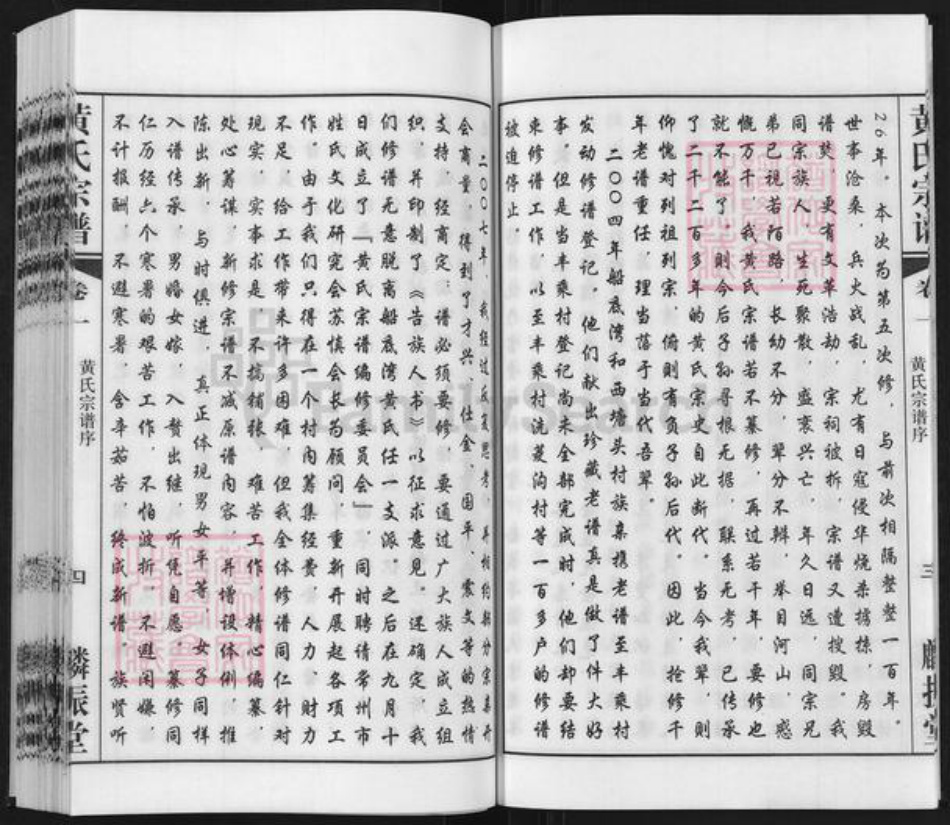 黄氏宗谱
卷一
黄氏宗谱序
三
26年。本次为第五次修，与前次相隔整整一百年。
世事沧桑，兵火战乱，尤有日寇侵华烧杀掳掠，房毁
谱焚，更有文革浩劫，宗祠被拆，宗谱又遭搜毁。我
同宗族人，生死聚散，盛衰兴亡，年久日远，同宗兄
弟已视若陌路，长幼不分，辈分不辩，举目河山，感
慨万千，我黄氏宗谱若不纂修，再过若干年，要修也
就不能了，则今后子孙寻根无据，联系无考，已传承
了二千二百多年的黄氏宗史自此断代。当今我辈，则
仰愧对列祖列宗，俯则有负子孙后代。因此，抢修千
年老谱重任，理当落于当代吾辈。
二〇〇四年船底湾和西塘头村族亲携老谱至丰乘村
发动修谱登记，他们献出珍藏老谱真是做了件大好
事。但是当丰乘村登记尚未全部完成时，他们却要结
束修谱工作，以至丰乘村、洗菱沟村等一百多户的修谱
被迫停止。
二〇〇七年，我经过反复思考，并相约部分宗亲开
会商量，得到了才兴、仕金、国平、震文等的热情
支持，经商定，谱必须要修，要通过广大族人成立组
织，并印制了《告族人书》以征求意见。还确定，我
们修谱无意脱离船底湾黄氏任一支派。之后在九月十
日成立了「黄氏宗谱编修委员会」，同时聘请常州市
姓氏文化研究会苏慎会长为顾问，重新开展起各项工
作。由于我们只得在一个村内筹集经费，人力力财力
不足，给工作带来许多困难，但我全体修谱同仁针对
现实，实事求是，不搞铺张，难苦工作，精心编纂，
处心筹谋，新修宗谱不减原谱内容，并增设体例，推
陈出新，与时俱进，真正体现男女平等，女子同样
入谱传承，男婚女嫁，入赘出继，听凭自愿。纂修同
仁历经六个寒暑的艰苦工作，不怕波折，不避闲嫌，
不计报酬，不避寒暑，含辛茹苦，终成新谱。族贤听
黄氏宗谱
卷一
黄氏宗谱序
四
麟振堂
FamilySearch